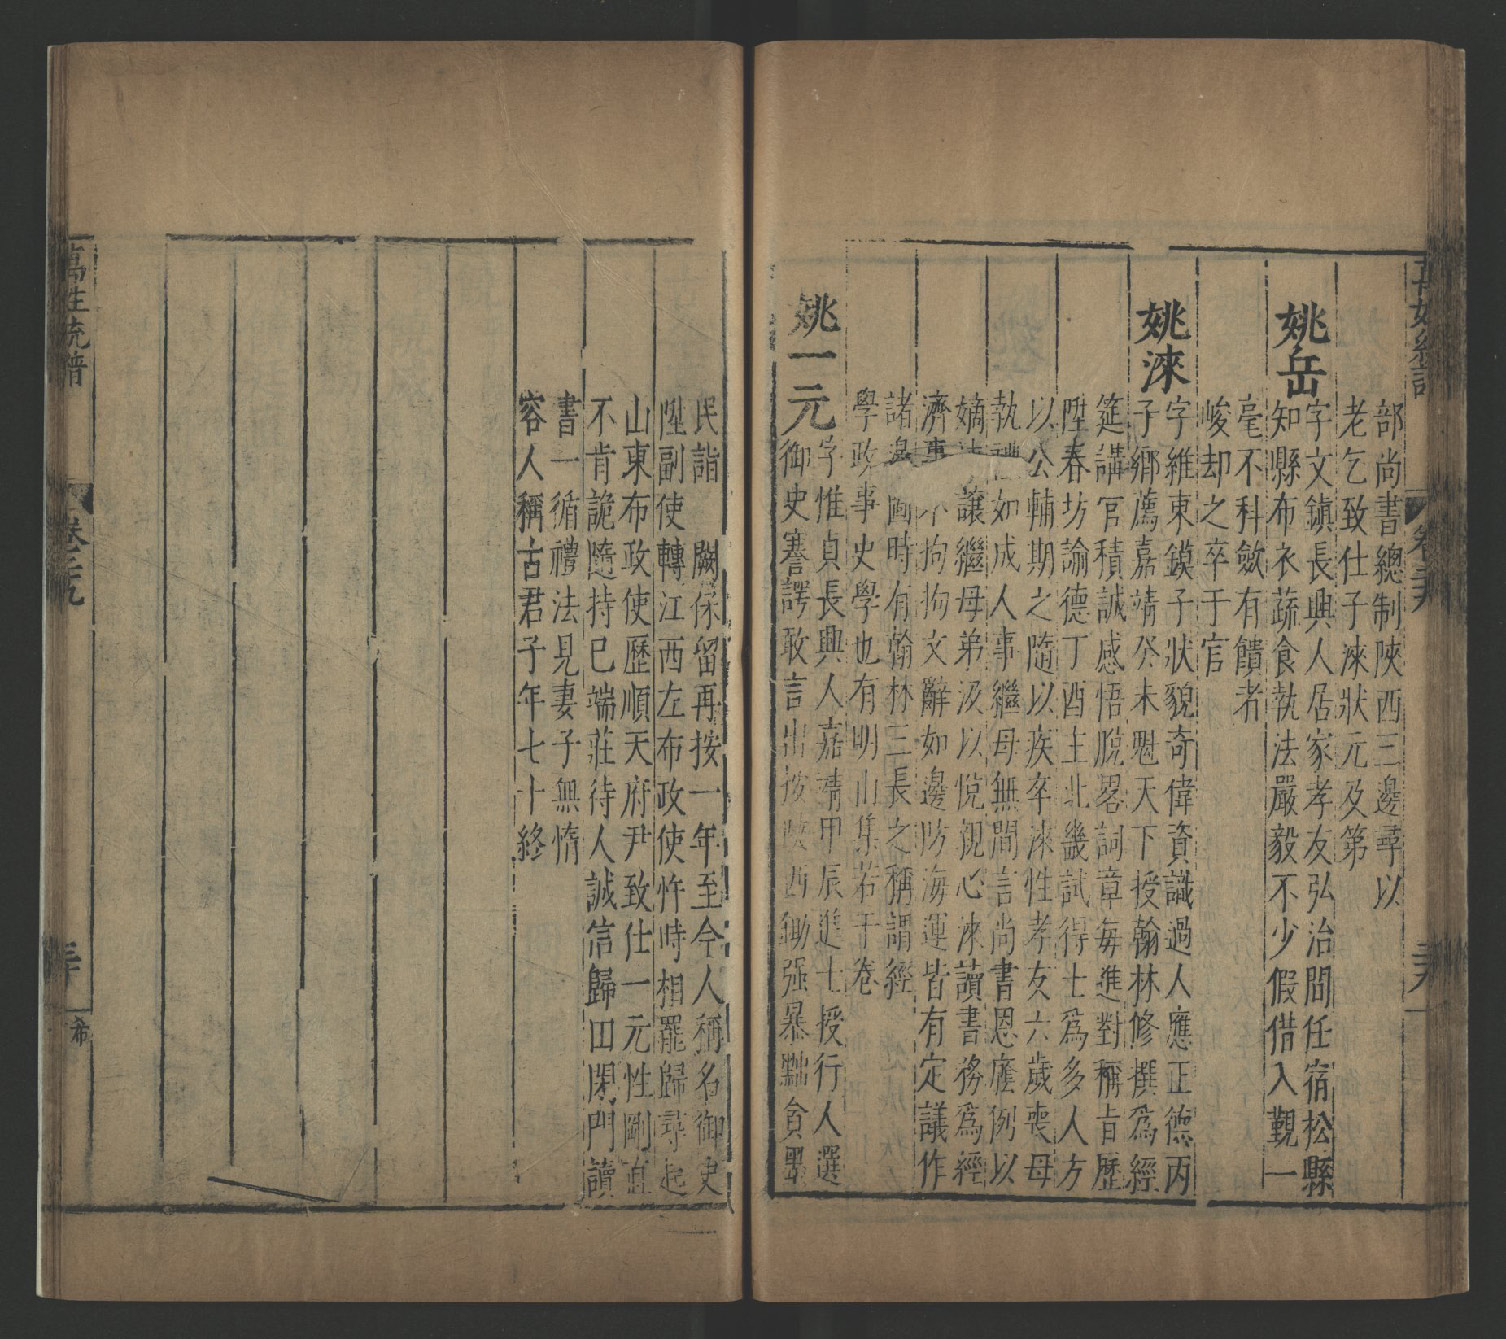 部尚書總制陝西三邊尋以
老乞致仕子淶狀元及第
姚岳
字文鎮長興人居家孝友弘治間任宿松縣
知縣布衣蔬食執法嚴毅不少假借入覲一
毫不科斂有饋者
峻却之卒于官
姚淶
字維東鏌子狀貌奇偉資識過人應正德丙
子鄉薦嘉靖癸未魁天下授翰林修撰爲經
筵講官積誠感悟脫畧詞章每進對稱旨歷
陞春坊諭德丁酉主北畿試得士爲多人方
以公輔期之隨以疾卒淶性孝友六歲喪母
執 如成人事繼母無間言尚書恩廕例以
嫡 讓繼母弟汲以悅親心淶讀書務爲經
濟事 不拘拘文辭如邊防海運皆有定議作
諸 時有翰林三長之稱謂經
學政事史學也有明山集若干卷
姚一元
字惟貞長興人嘉靖甲辰進士授行人選
御史謇諤敢言出按陝西鋤强暴黜貪墨
民詣 闕保留再按一年至今人稱名御史
陞副使轉江西左布政使忤時相罷歸尋起
山東布政使歷順天府尹致仕一元性剛直
不肯詭隨持已端莊待人誠信歸田閉門讀
書一循禮法見妻子無惰
容人稱古君子年七十終
萬姓統譜
卷三十九
三十